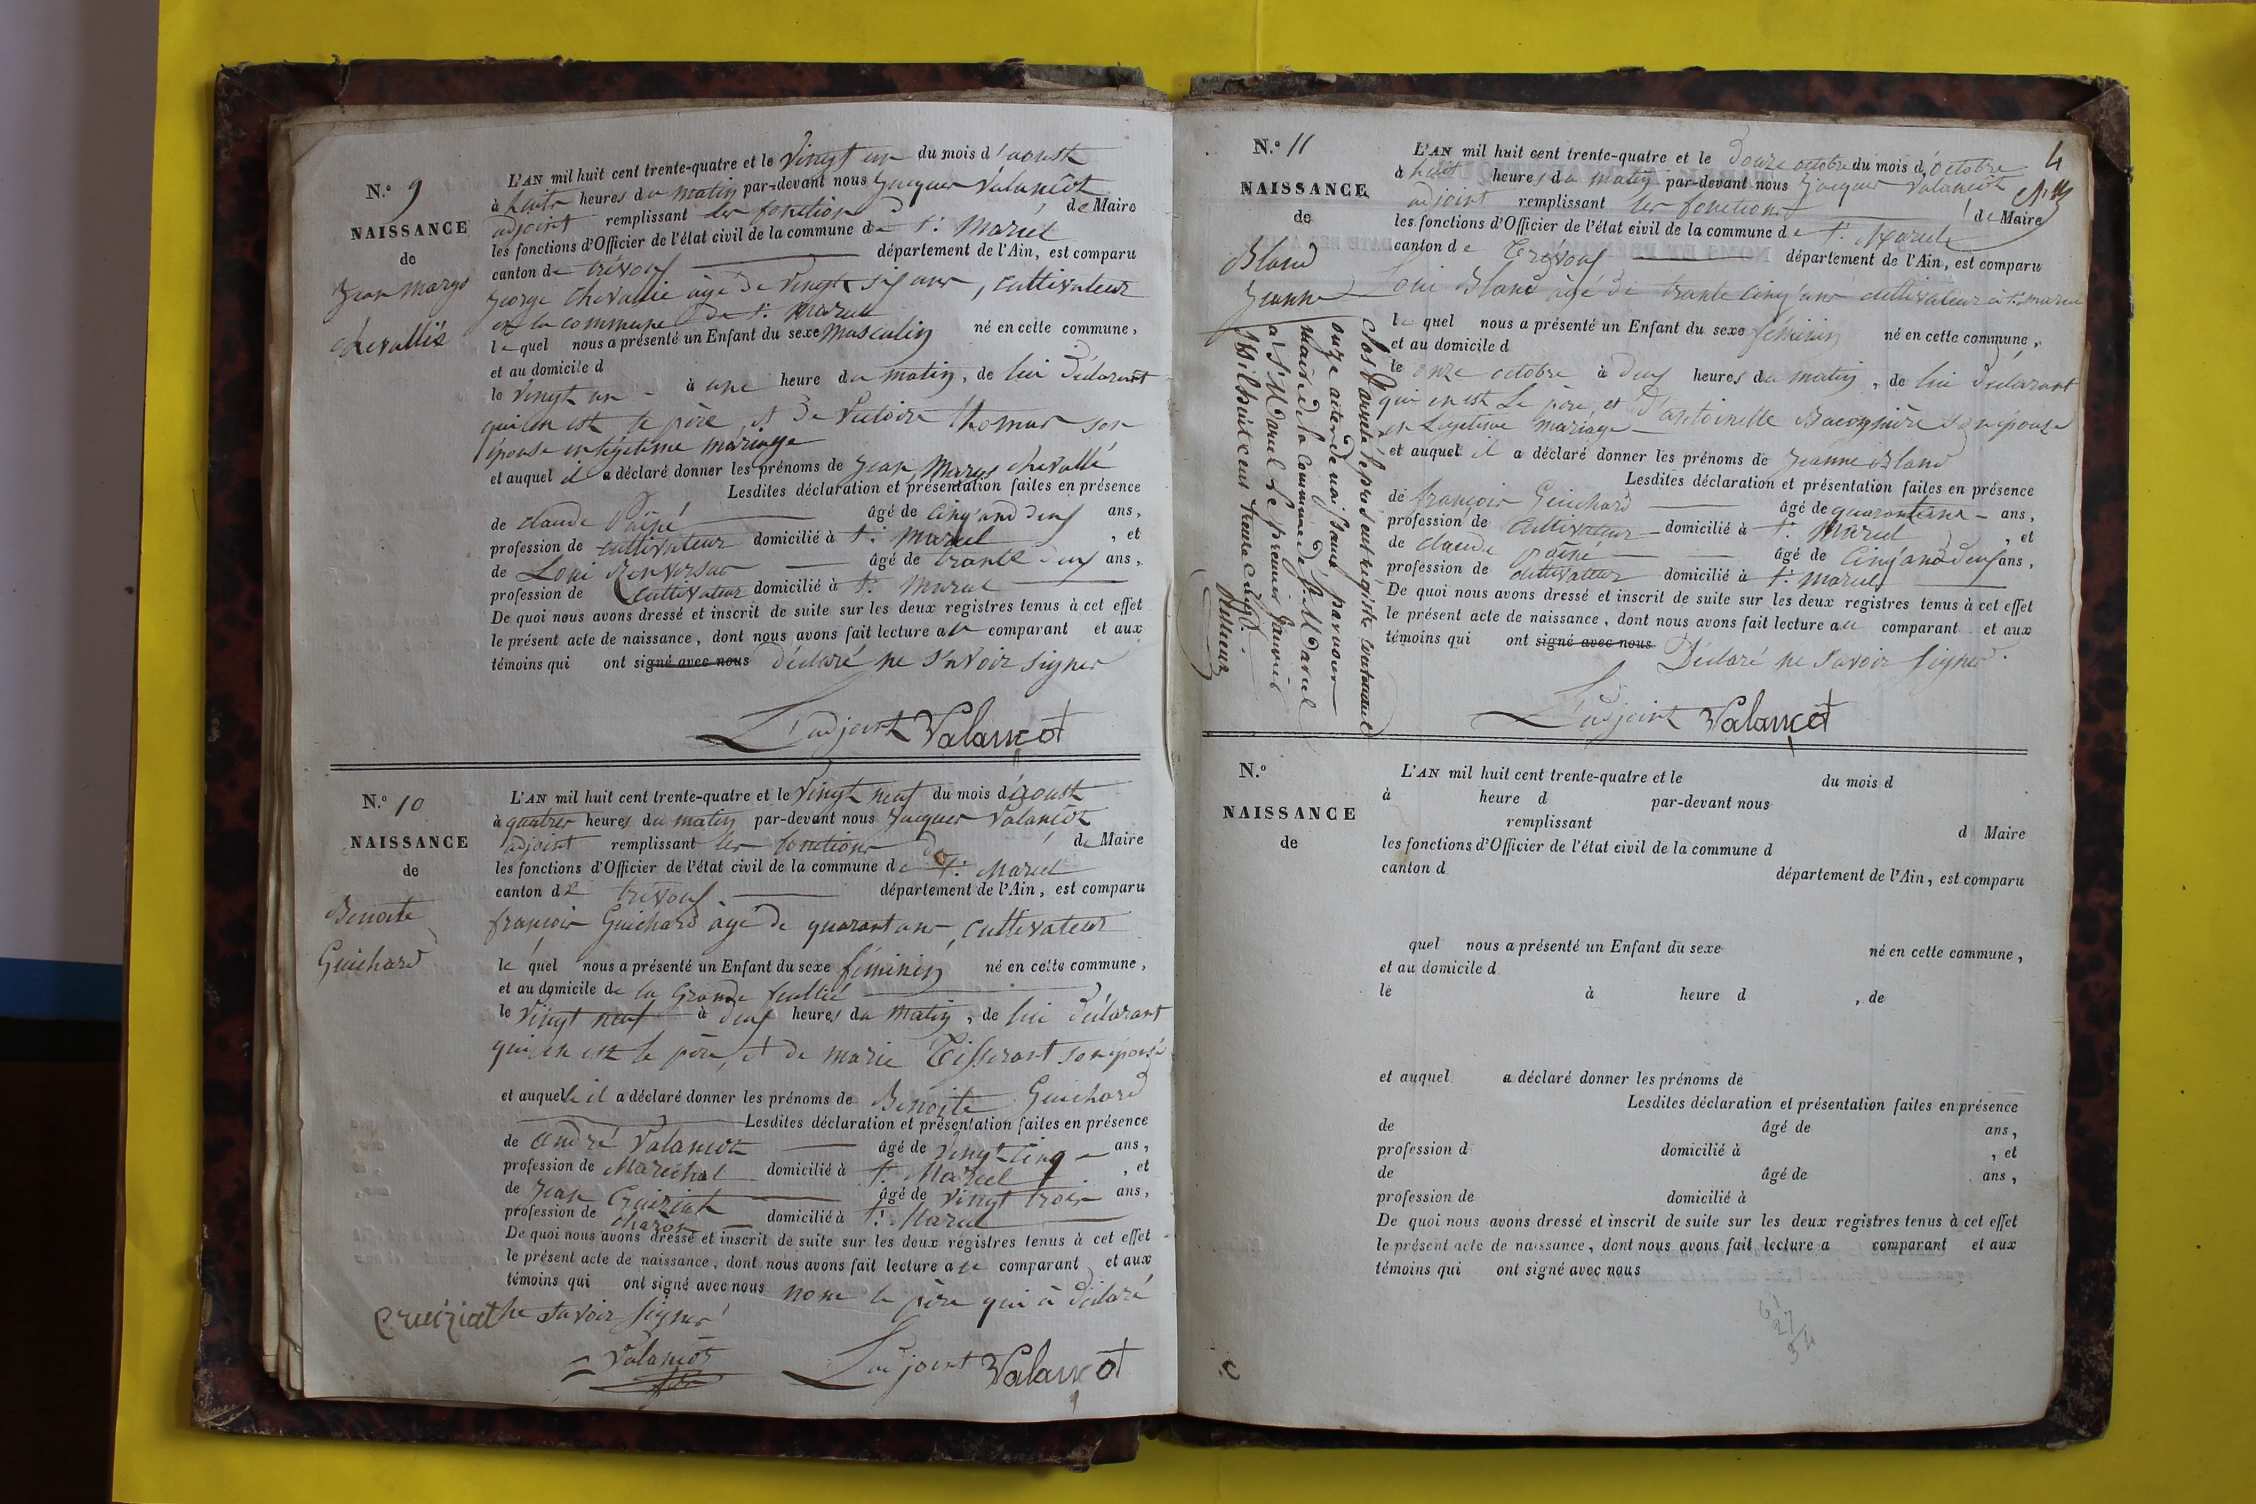 N.o 9
NAISSANCE
de
Jean Marys
chevallié
L'AN mil huit cent trente-quatre et le vingt un du mois d'aoust
à huits heures du matin par-devant nous Jacques Valançot
adjoint remplissant les fonction de Maire
les fonctions d'Officier de l'état civil de la commune de St. Marcel
canton de trévoux département de l'Ain, est comparu
George chevallié agé de vingt six ans, cultivateur
en la commune de St. Marcel
le quel nous a présenté un Enfant du sexe masculin né en cette commune,
et au domicile d
le vingt un à une heure du matin, de lui déclarant
qui en est le père et de Victoire thomas son
épouse en légitime mariage
et auquel il a déclaré donner les prénoms de Jean Marys chevallé
Lesdites déclaration et présentation faites en présence
de claude âgé de cinq'and deux ans,
profession de cultivateur domicilié à St. Marcel, et
de Loui Renversad âgé de trante deux ans,
profession de cultivateur domicilié à St. Marcel
De quoi nous avons dressé et inscrit de suite sur les deux registres tenus à cet effet
le présent acte de naissance, dont nous avons fait lecture au comparant et aux
témoins qui ont signé avec nous déclaré ne s'avoir signer
L'adjoint Valançot
N.o 10
NAISSANCE
de
Benoite
Guichard
L'AN mil huit cent trente-quatre et le vingt neuf du mois d'aoust
à quatres heures du matin par-devant nous Jacques Valançot
adjoint remplissant les fonctions de Maire
les fonctions d'Officier de l'état civil de la commune de St. Marcel
canton de trévoux département de l'Ain, est comparu
françois Guichard agé de quarant ans, cultivateur
le quel nous a présenté un Enfant du sexe féminin né en cette commune,
et au domicile de la Grande
le vingt neuf à deux heures du matin, de lui déclarant
qui en est le père, et de marie Tisserant son épouse
et auquelle il a déclaré donner les prénoms de Benoite Guichard
Lesdites déclaration et présentation faites en présence
de andré Valançot âgé de vingt cinq ans,
profession de Maréchal domicilié à St. Marcel, et
de Jean Cruiziat âgé de vingt trois ans,
profession de charon domicilié à St. Marcel
De quoi nous avons dressé et inscrit de suite sur les deux registres tenus à cet effet
le présent acte de naissance, dont nous avons fait lecture au comparant et aux
témoins qui ont signé avec nous nom le père qui à déclaré
cruiziat ne savoir signer
Valançot L'adjoint Valançot
4
N.o 11
NAISSANCE
de
Bland
Jeanne
L'AN mil huit cent trente-quatre et le douze octobre du mois d'octobre
à huit heures du matin par-devant nous Jacques Valançot
adjoint remplissant les fonctions de Maire
les fonctions d'Officier de l'état civil de la commune de St. Marcel
canton de Trévoux département de l'Ain, est comparu
Loui Bland agé de trante cinq'ans cultivateur à St. marcel
le quel nous a présenté un Enfant du sexe féminin né en cette commune,
et au domicile d
le onze octobre à deux heures du matin, de lui déclarant
qui en est Le père, et d'antoinette son épouse
en Legitime mariage
et auquel il a déclaré donner les prénoms de Jeanne Bland
Lesdites déclaration et présentation faites en présence
de françois Guichard âgé de quarante ans,
profession de cultivateur domicilié à St. Marcel, et
de claude âgé de cinq'and deux ans,
profession de cultivateur domicilié à St. marcel
De quoi nous avons dressé et inscrit de suite sur les deux registres tenus à cet effet
le présent acte de naissance, dont nous avons fait lecture au comparant et aux
témoins qui ont signé avec nous Déclaré ne savoir signer.
L'adjoint Valançot
Clos & arreté le présent régistre contenant
onze actes de naissance par nous
maire de la Commune de St. Marcel
a St. Marcel le premier Janvier
Mil huit cent trente cinq.
N.o
NAISSANCE
de
L'AN mil huit cent trente-quatre et le du mois d
à heure d par-devant nous
remplissant d Maire
les fonctions d'Officier de l'état civil de la commune d
canton d département de l'Ain, est comparu
quel nous a présenté un Enfant du sexe né en cette commune,
et au domicile d
le à heure d , de
et auquel a déclaré donner les prénoms de
Lesdites déclaration et présentation faites en présence
de âgé de ans,
profession d domicilié à , et
de âgé de ans,
profession de domicilié à
De quoi nous avons dressé et inscrit de suite sur les deux registres tenus à cet effet
le présent acte de naissance, dont nous avons fait lecture a comparant et aux
témoins qui ont signé avec nous
61
27
34